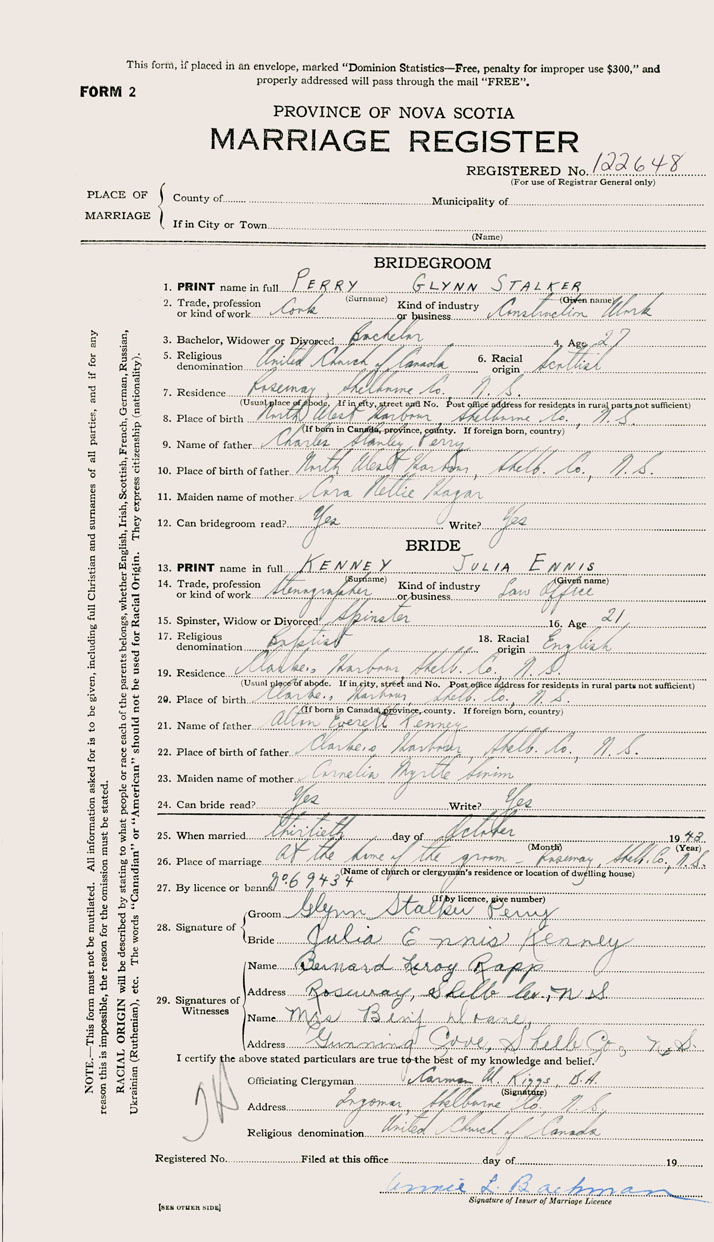 This form, if placed in an envelope, marked “Dominion Statistics—Free, penalty for improper use $300,” and
properly addressed will pass through the mail “FREE”.
FORM 2
PROVINCE OF NOVA SCOTIA
MARRIAGE REGISTER
REGISTERED No. 122648
(For use of Registrar General only)
PLACE OF MARRIAGE
County of Municipality of
If in City or Town
(Name)
BRIDEGROOM
1. PRINT name in full PERRY GLYNN STALKER
(Surname) (Given name)
2. Trade, profession or kind of work Cook Kind of industry or business Construction Work
3. Bachelor, Widower or Divorced Bachelor 4. Age 27
5. Religious denomination United Church of Canada 6. Racial origin Scottish
7. Residence Roseway, Shelburne Co., N.S.
(Usual place of abode. If in city, street and No. Post office address for residents in rural parts not sufficient)
8. Place of birth North West Harbour, Shelburne Co., N.S.
(If born in Canada, province, county. If foreign born, country)
9. Name of father Charles Stanley Perry
10. Place of birth of father North West Harbour, Shelb. Co., N.S.
11. Maiden name of mother Cora Nettie Hagar
12. Can bridegroom read? Yes Write? Yes
BRIDE
13. PRINT name in full KENNEY JULIA ENNIS
(Surname) (Given name)
14. Trade, profession or kind of work Stenographer Kind of industry or business Law Office
15. Spinster, Widow or Divorced Spinster 16. Age 21
17. Religious denomination Baptist 18. Racial origin English
19. Residence Clarke's Harbour Shelb. Co., N.S.
(Usual place of abode. If in city, street and No. Post office address for residents in rural parts not sufficient)
20. Place of birth Clarke's Harbour, Shelb. Co., N.S.
(If born in Canada, province, county. If foreign born, country)
21. Name of father Allan Everett Kenney
22. Place of birth of father Clarke's Harbour, Shelb. Co., N.S.
23. Maiden name of mother Cornelia Myrtle
24. Can bride read? Yes Write? Yes
25. When married thirtieth day of October 1943
(Month) (Year)
26. Place of marriage at the home of the groom – Roseway, Shelb. Co., N.S.
(Name of church or clergyman's residence or location of dwelling house)
27. By licence or banns No 69434
(If by licence, give number)
28. Signature of
Groom Glynn Stalker Perry
Bride Julia Ennis Kenney
29. Signatures of Witnesses
Name Bernard Leroy Rapp
Address Roseway, Shelb Co., N S
Name Mrs Benj Doane,
Address Gunning Cove, Shelb Co, N.S.
I certify the above stated particulars are true to the best of my knowledge and belief.
Officiating Clergyman Norman W. Riggs, B.A.
(Signature)
Address Ingomar, Shelburne Co., N.S.
Religious denomination United Church of Canada
Registered No. Filed at this office day of 19
Annie L. Bachman
Signature of Issuer of Marriage Licence
[SEE OTHER SIDE]
NOTE.—This form must not be mutilated. All information asked for is to be given, including full Christian and surnames of all parties, and if for any
reason this is impossible, the reason for the omission must be stated.
RACIAL ORIGIN will be described by stating to what people or race each of the parents belongs, whether English, Irish, Scottish, French, German, Russian,
Ukrainian (Ruthenian), etc. The words “Canadian” or “American” should not be used for Racial Origin. They express citizenship (nationality).